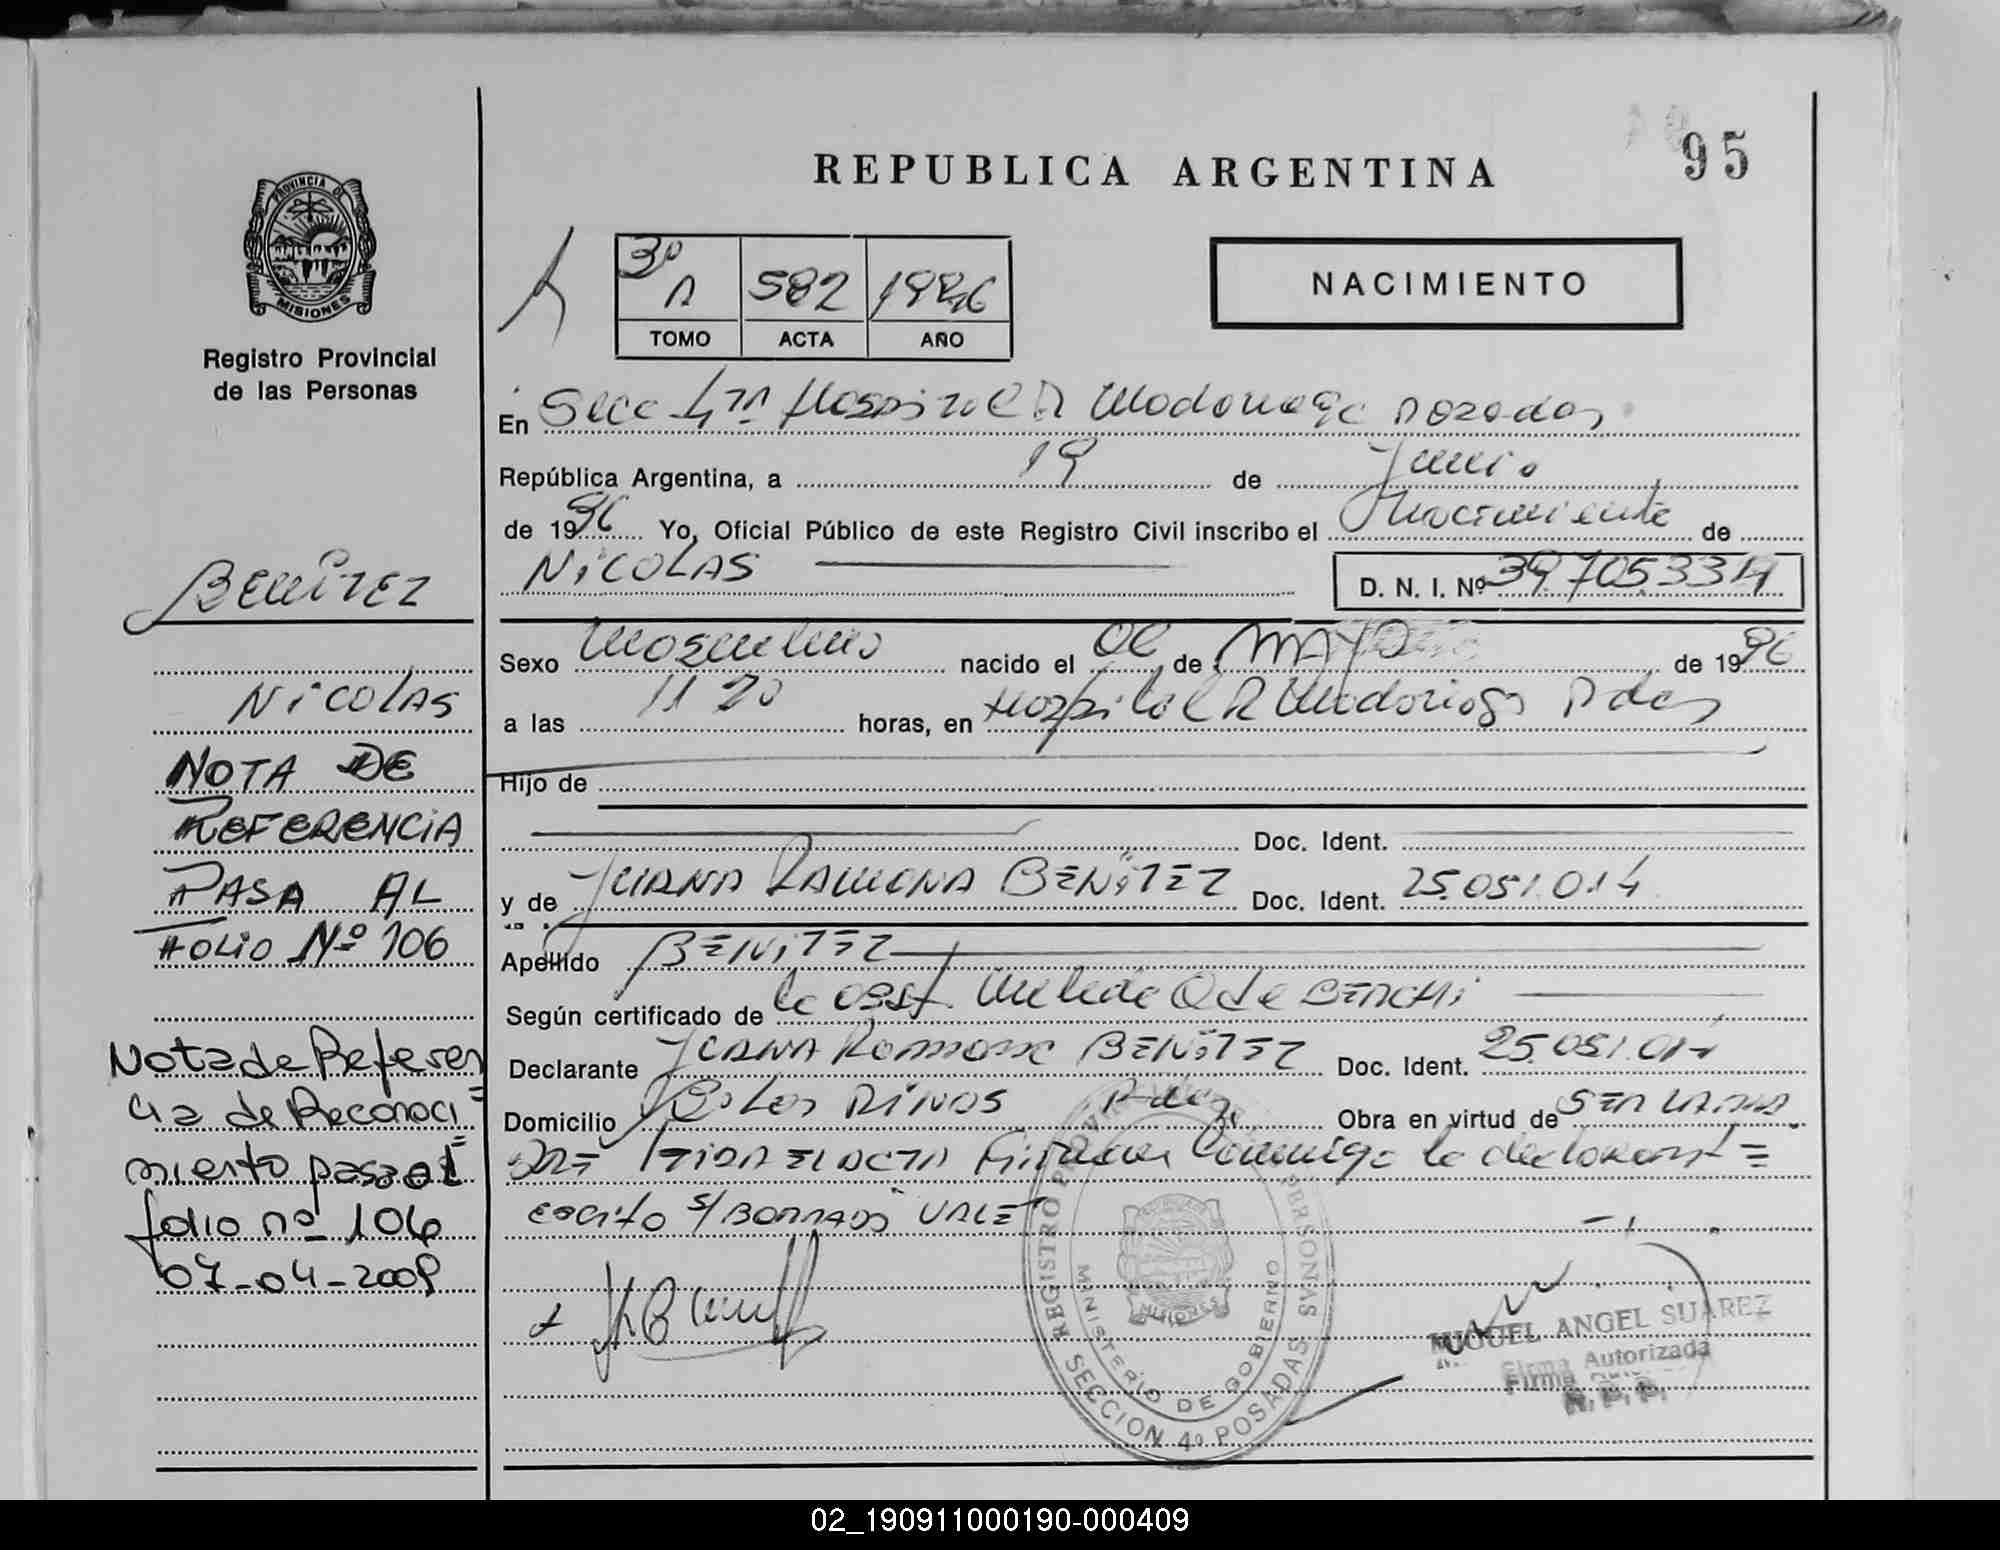 95
REPUBLICA ARGENTINA
PROVINCIA DE
MISIONES
Registro Provincial
de las Personas
3º A 582 1996
TOMO ACTA AÑO
NACIMIENTO
En Secc 4ta Hospital R Madariaga Posadas
República Argentina, a 19 de Junio
de 1996 Yo, Oficial Público de este Registro Civil inscribo el Nacimiento de
NICOLAS D. N. I. Nº 39.705.334
Sexo Masculino nacido el 02 de MAYO de 1996
a las 11 20 horas, en Hospital R Madariaga Pdas
Hijo de
Doc. Ident.
y de JUANA RAMONA BENÍTEZ Doc. Ident. 25.051.014
Apellido BENITEZ
Según certificado de la obst.
Declarante JUANA Ramona BENÍTEZ Doc. Ident. 25.051.014
Domicilio Pdas Obra en virtud de SER LA MA
DRE leida EL ACTA Firma Conmigo la declarant=
escrito s/BORRADO VALE
BENÍTEZ
NICOLAS
NOTA DE
REFERENCIA
PASA AL
FOLIO Nº 106
Nota de Referen
cia de Reconoci=
miento pasa al=
folio nº 106
07-04-2009
REGISTRO PROVINCIAL PERSONAS
MINISTERIO DE GOBIERNO
MISIONES
SECCION 4º POSADAS
MIGUEL ANGEL SUAREZ
Firma Autorizada
R.P.P.
02_190911000190-000409